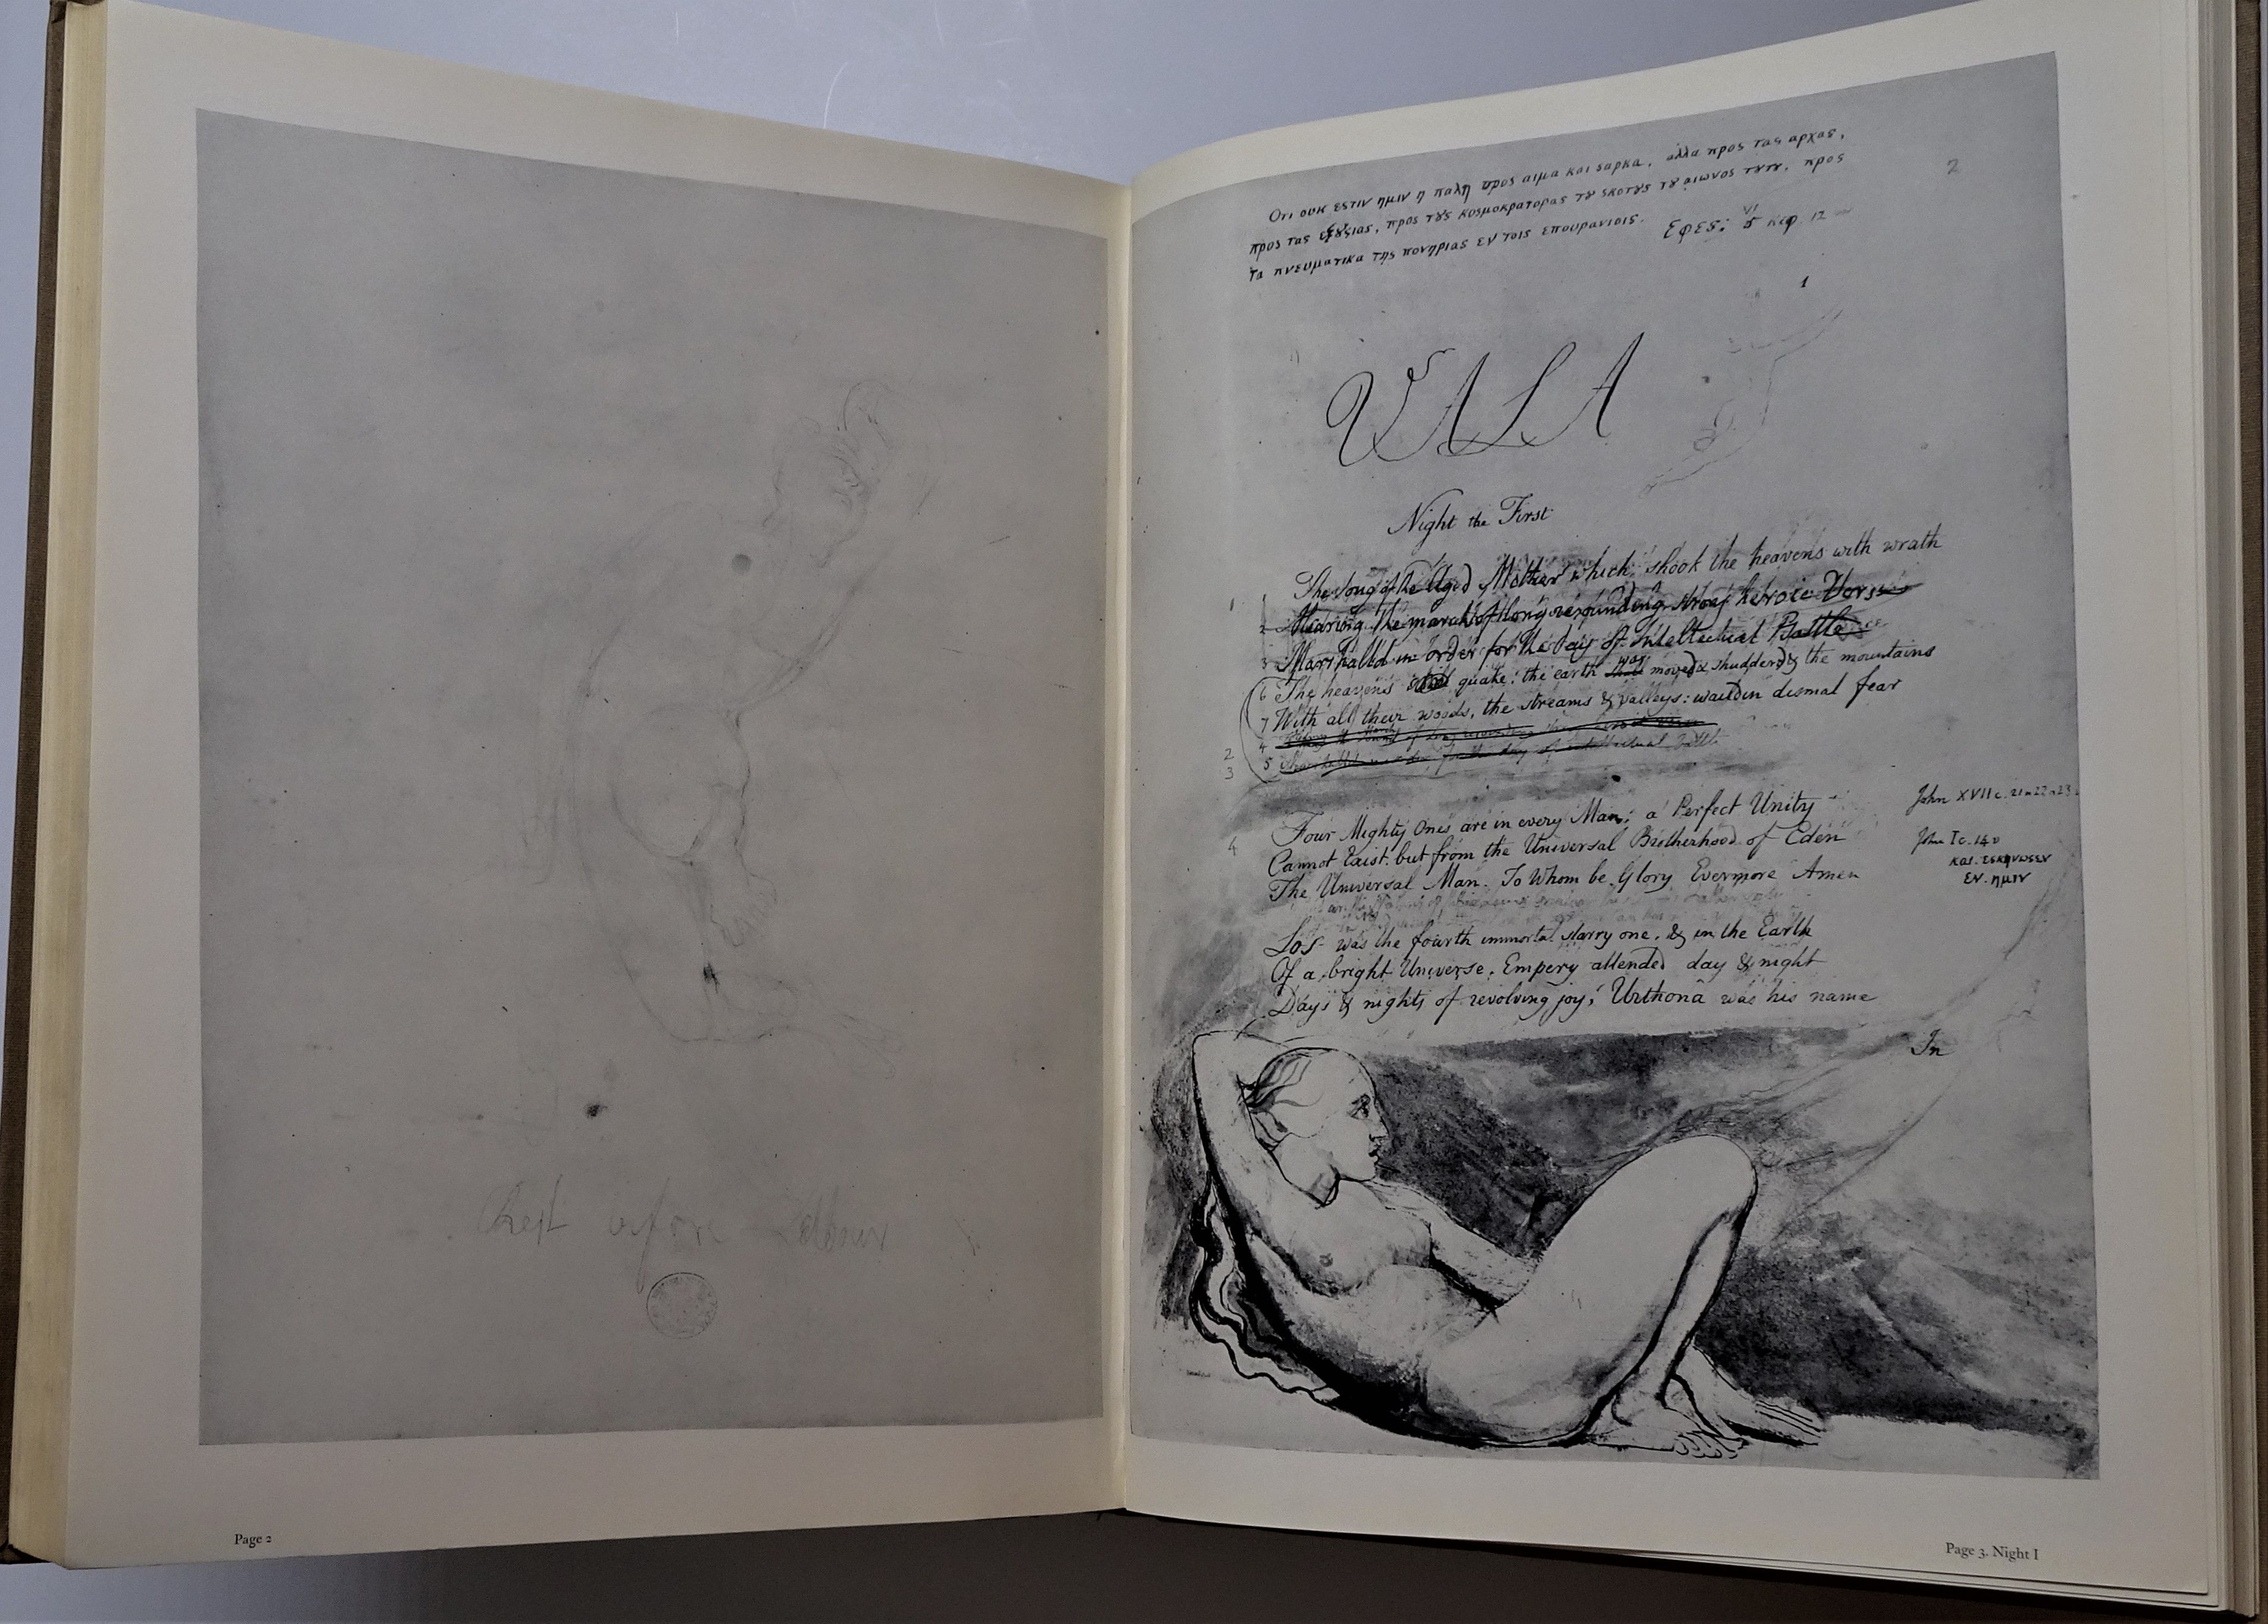 Rest before Labour
Page 2
Οτι ουκ εστιν ημιν η παλη προς αιμα και σαρκα, αλλα προς τας αρχας,
προς τας εξȣσιας, προς τȣς κοσμοκρατορας τȣ σκοτȣς τȣ αιωνος τȣτȣ, προς
τα πνευματικα της πονηριας εν τοις επουρανιοις.
Εφες: VI 5 κεφ. 12
2
1
VALA
Night the First
1 The Song of the Aged Mother which shook the heavens with wrath
2 Hearing the march of long resounding strong heroic Verse
3 Marshalld in order for the day of Intellectual Battle
6 The heavens quake: the earth was moved & shudderd & the mountains
7 With all their woods, the streams & valleys: waild in dismal fear
2 4 of long resounding
3 5 Marshalld in order for the day of intellectual battle
4 Four Mighty Ones are in every Man; a Perfect Unity
Cannot Exist. but from the Universal Brotherhood of Eden
The Universal Man. To Whom be Glory Evermore Amen
John XVII c. 21 22 23
John I c. 14 v
και. εσκηνωσεν
εν. ημιν
Los was the fourth immortal starry one, & in the Earth
Of a bright Universe, Empery attended day & night
Days & nights of revolving joy, Urthona was his name
In
Page 3. Night I